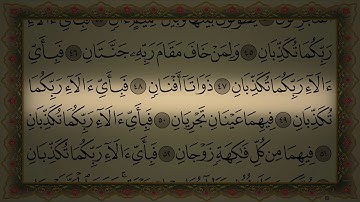 رَبِّكُمَا تُكَذِّبَانِ ٤٥ وَلِمَنْ خَافَ مَقَامَ رَبِّهِۦ جَنَّتَانِ ٤٦ فَبِأَىِّ
ءَالَآءِ رَبِّكُمَا تُكَذِّبَانِ ٤٧ ذَوَاتَآ أَفْنَانٍ ٤٨ فَبِأَىِّ ءَالَآءِ رَبِّكُمَا
تُكَذِّبَانِ ٤٩ فِيهِمَا عَيْنَانِ تَجْرِيَانِ ٥٠ فَبِأَىِّ ءَالَآءِ رَبِّكُمَا تُكَذِّبَانِ
٥١ فِيهِمَا مِن كُلِّ فَٰكِهَةٍ زَوْجَانِ ٥٢ فَبِأَىِّ ءَالَآءِ رَبِّكُمَا تُكَذِّبَانِ